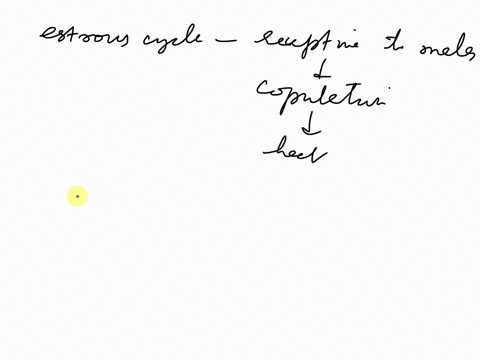 estrous cycle — receptive to males
↓
copulation
↓
heat